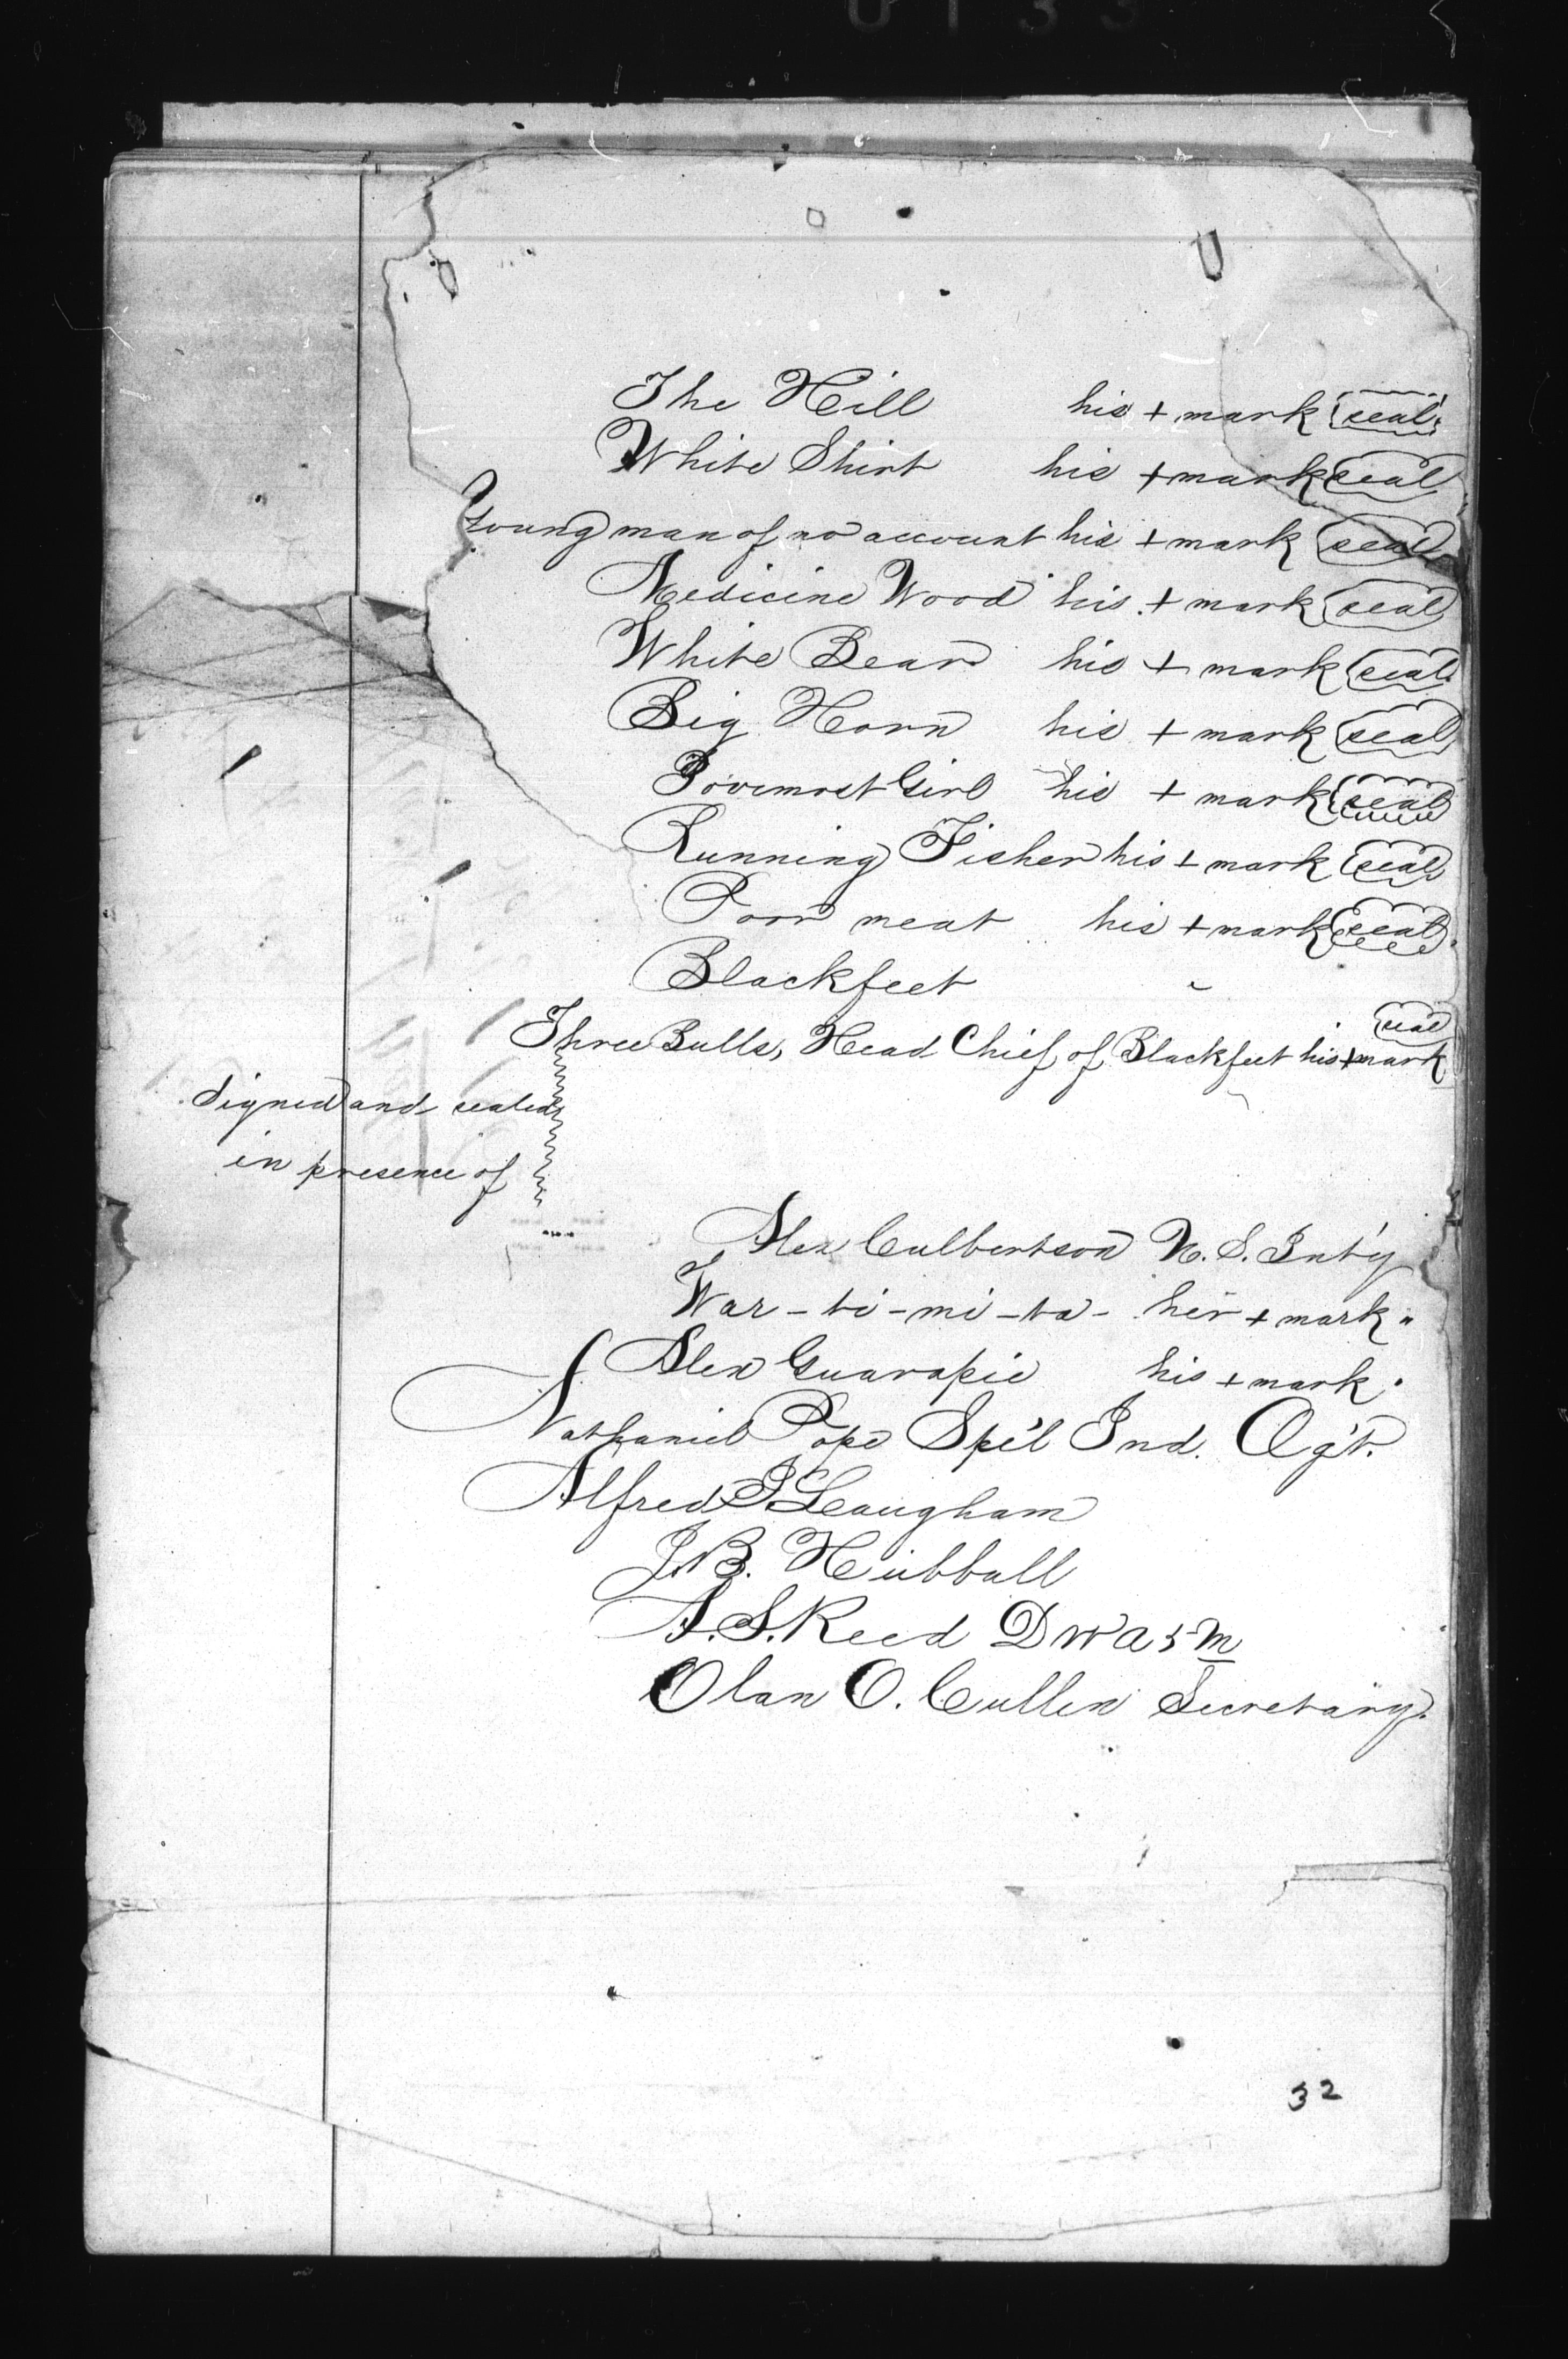 0133
The Hill his + mark seal
White Shirt his + mark seal
Young man of no account his + mark seal
Medicine Wood his + mark seal
White Bear his + mark seal
Big Horn his + mark seal
Foremost Girl his + mark seal
Running Fisher his + mark seal
Poor meat his + mark seal
Blackfeet
Three Bulls, Head Chief of Blackfeet his + mark seal
Signed and sealed
in presence of
Alex Culbertson U. S. Int'y
War-ti-mi-ta- her + mark "
Alex Guarapie his + mark "
Nathaniel Pope Spe'l Ind. Ag't.
Alfred J Laugham
J. B. Hubball
A. S. Reed
Olan O. Cullen Secretary.
32